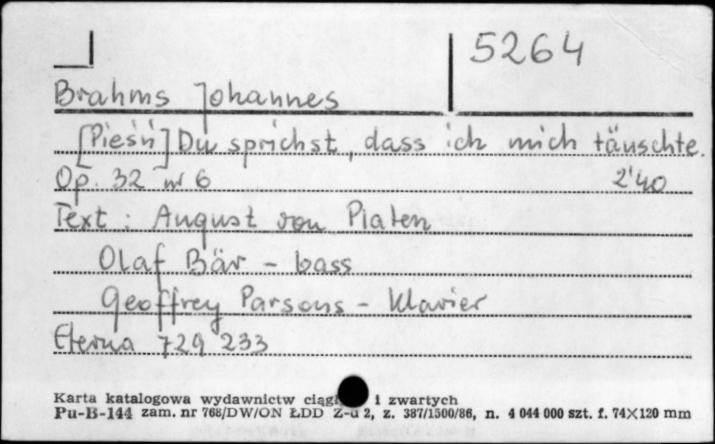 5264
Brahms Johannes
[Pieśń] Du sprichst, dass ich mich täuschte.
Op. 32 nr 6 2'40
Text : August von Platen
Olaf Bär - bass
Geoffrey Parsons - Klavier
Eterna 729 233
Karta katalogowa wydawnictw i zwartych
Pu-B-144 zam. nr 768/DW/ON ŁDD Z-d 2, z. 387/1500/86, n. 4 044 000 szt. f. 74×120 mm